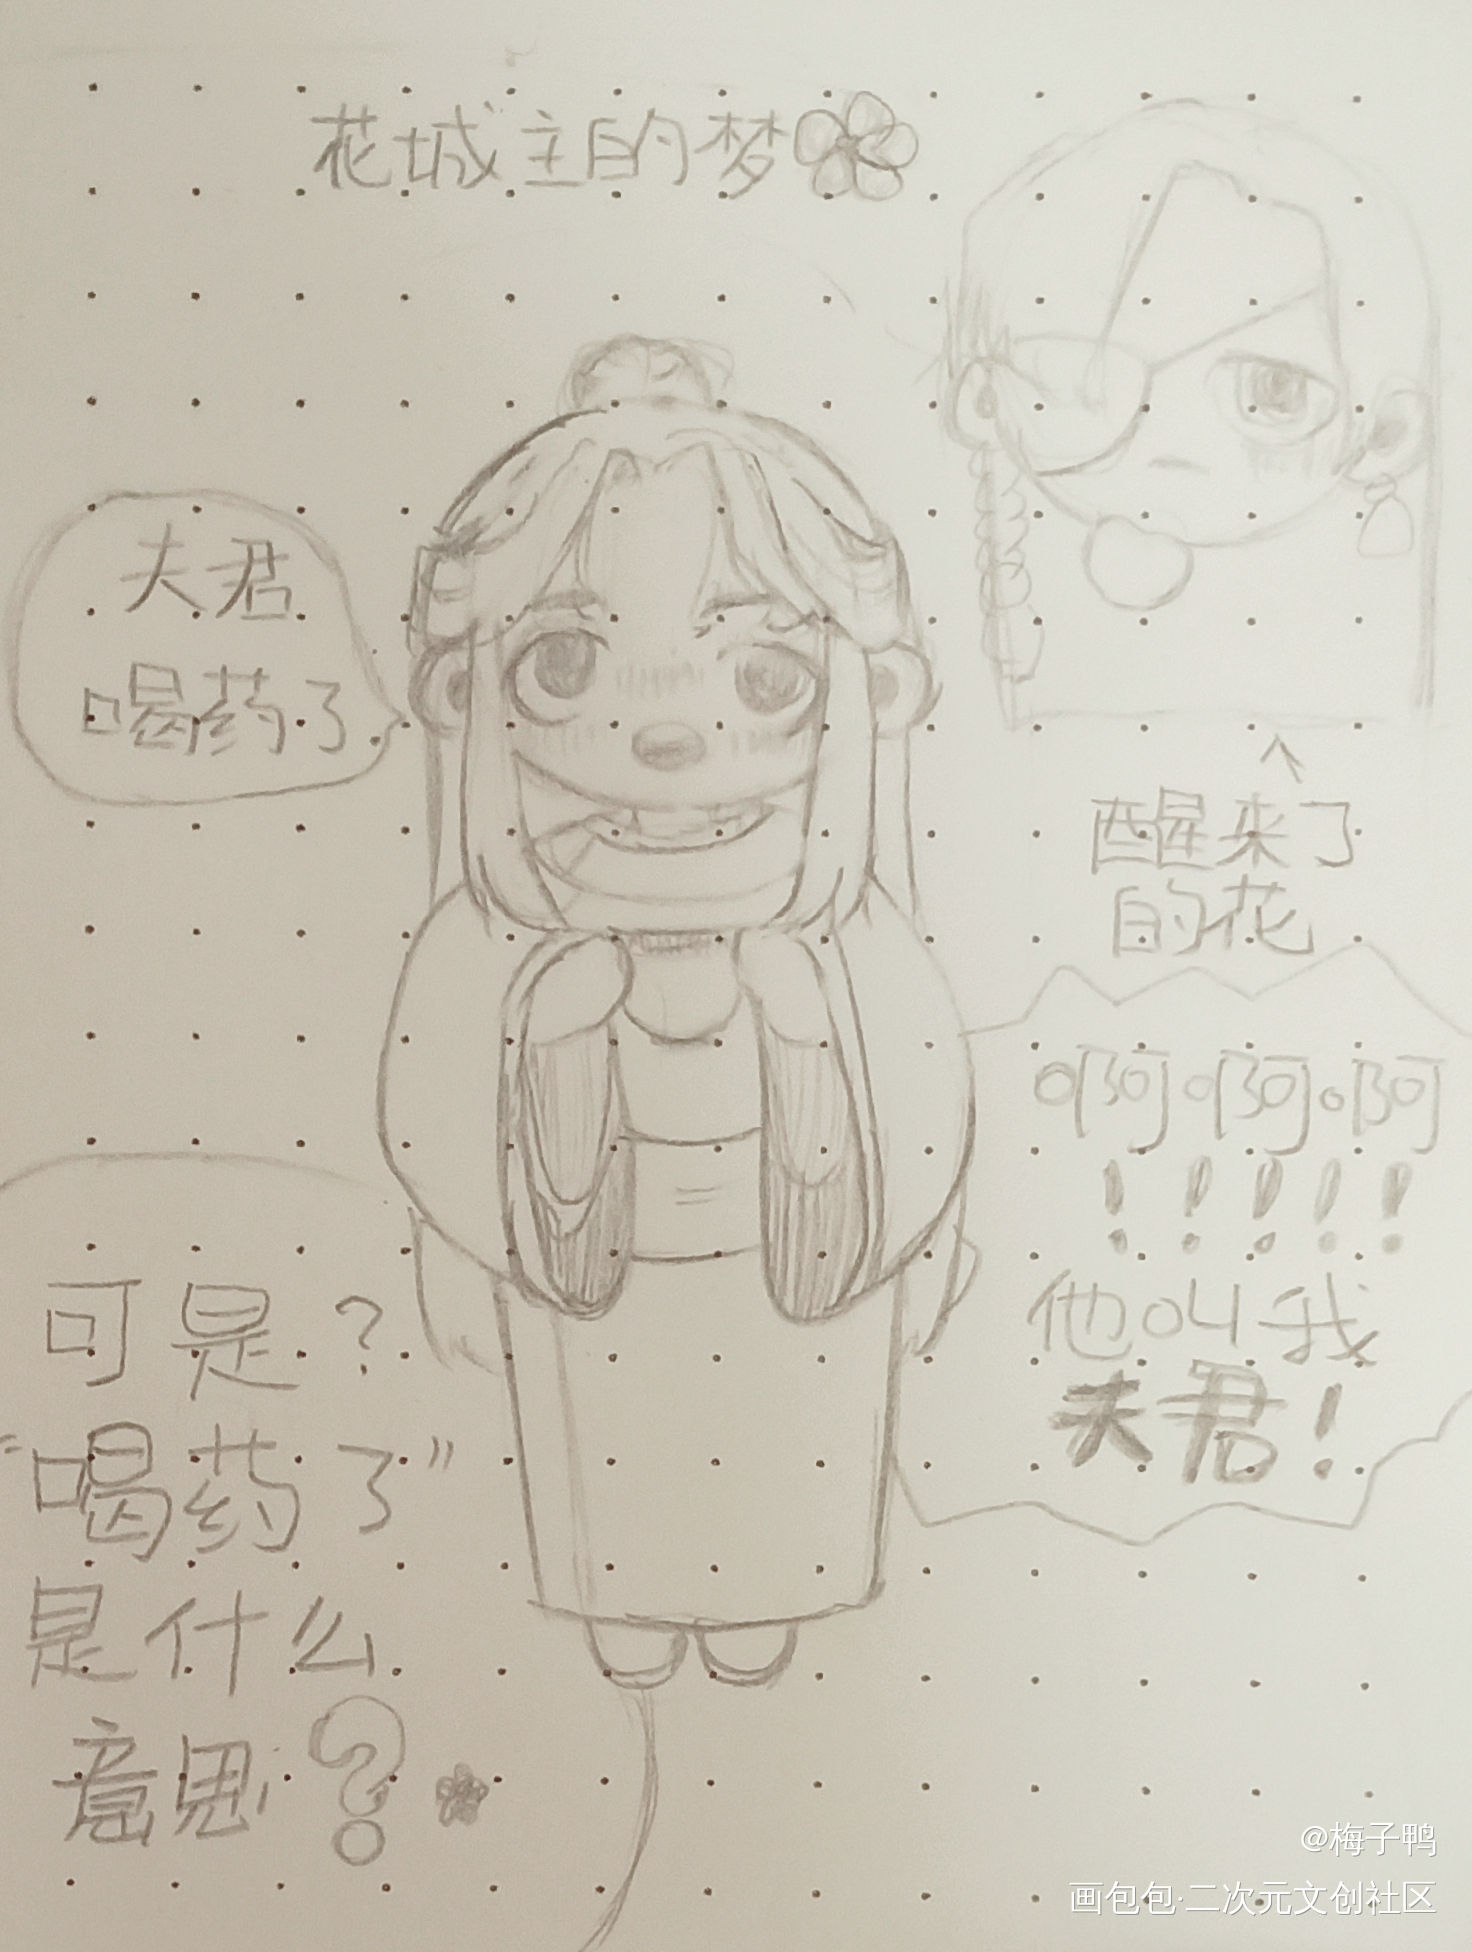 花城主的梦
夫君
喝药了
醒来了
的花
啊啊啊
！！！！！
他叫我
夫君！
可是？
“喝药了”
是什么
意思？
@梅子鸭
画包包·二次元文创社区